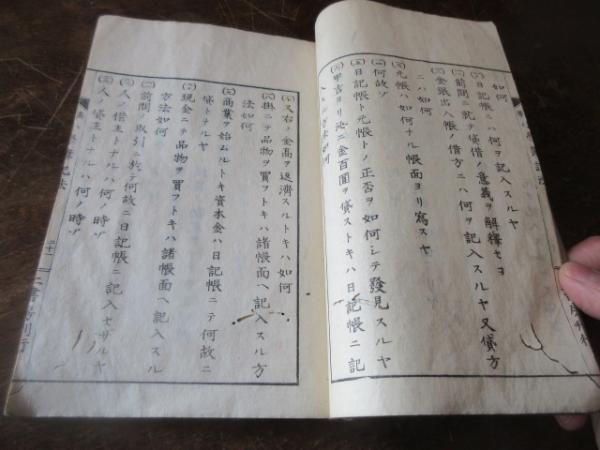 如何
日記帳ニハ何ヲ記入スルヤ
前問ニ記シタ貸借ノ意義ヲ解釋セヨ
金銀出入帳ノ借方ニハ何ヲ記入スルヤ又貸方
ニハ如何
元帳ハ如何ナル帳面ヨリ寫スヤ
何故ゾ
日記帳ト元帳トノ正否ヲ如何シテ發見スルヤ
甲吉ヨリ乙ニ金百圓ヲ貸ストキハ日記帳ニ記
又右ノ金高ヲ返濟スルトキハ如何
掛ニテ品物ヲ買フトキハ諸帳面ヘ記入スル方
法如何
商業ヲ始ムルトキ資本金ハ日記帳ニテ何故ニ
貸トナルヤ
現金ニテ品物ヲ買フトキハ諸帳面ヘ記入スル
方法如何
前問ノ取引ニ於テ何故ニ日記帳ニ記入セザルヤ
人ノ借主トナルハ何ノ時ゾ
人ノ貸主トナルハ何ノ時ゾ
二十一